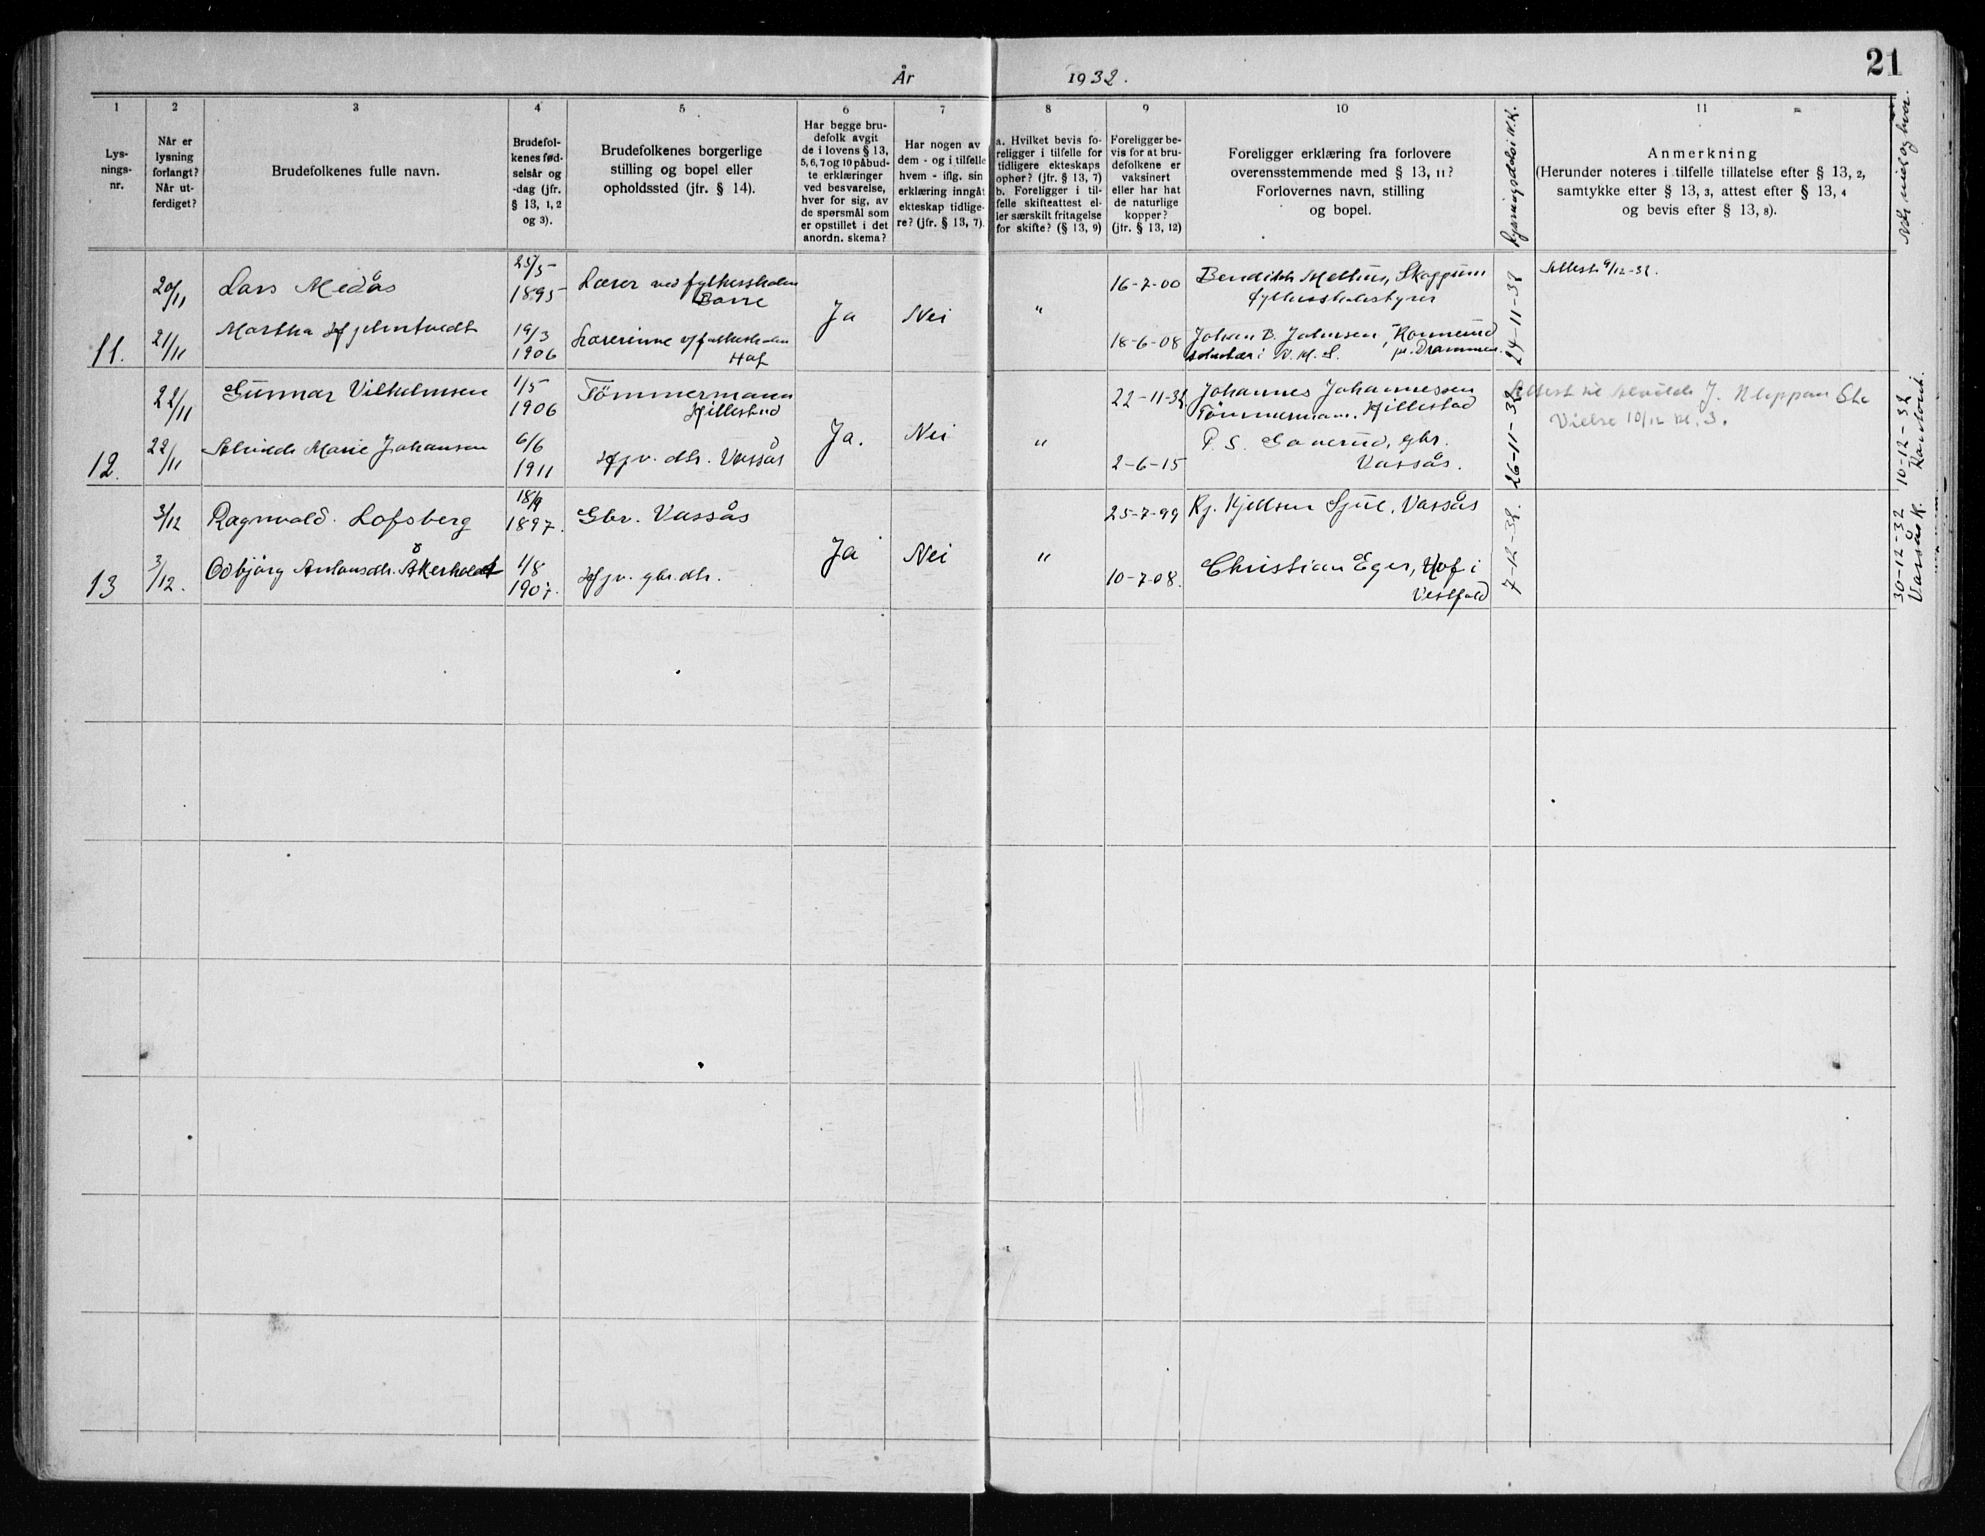 21
År 1932.
1 2 3 4 5 6 7 8 9 10 11
Lys-
nings-
nr.
Når er
lysning
forlangt?
Når ut-
ferdiget?
Brudefolkenes fulle navn.
Brudefol-
kenes fød-
selsår og
-dag (jfr.
§ 13, 1, 2
og 3).
Brudefolkenes borgerlige
stilling og bopel eller
opholdssted (jfr. § 14).
Har begge bru-
defolk avgit
de i lovens § 13,
5, 6, 7 og 10 påbud-
te erklæringer
ved besvarelse,
hver for sig, av
de spørsmål som
er opstillet i det
anordn. skema?
Har nogen av
dem - og i tilfelle
hvem - iflg. sin
erklæring inngåt
ekteskap tidlige-
re? (jfr. § 13, 7).
a. Hvilket bevis fo-
religger i tilfelle for
tidligere ekteskaps
ophør? (jfr. § 13, 7)
b. Foreligger i til-
felle skifteattest el-
ler særskilt fritagelse
for skifte? (§ 13, 9)
Foreligger be-
vis for at bru-
defolkene er
vaksinert
eller har hat
de naturlige
kopper?
(jfr. § 13, 12)
Foreligger erklæring fra forlovere
overensstemmende med § 13, 11?
Forlovernes navn, stilling
og bopel.
Anmerkning
(Herunder noteres i tilfelle tillatelse efter § 13, 2,
samtykke efter § 13, 3, attest efter § 13, 4
og bevis efter § 13, 8).
Når viet og hvor.
20/11 Lars Midås 25/5 1895 Lærer ved fylkesskolen
Borre
Ja Nei " 16-7-00 Skoppum
fylkesskolestyrer
24-11-32
Attest 9/12-32.
11. 21/11 Martha Hjelmtvedt 19/3 1906 Lærerinne v/folkeskolen
Hof
18-6-08 Johan B. Johnsen, Konnerud
pr. Drammen.
22/11 Gunnar Vilhelmsen 1/5 1906 Tömmermann
Hillestad
Ja. Nei " 22-11-32. Johannes Johannessen
Tömmermann, Hillestad
26-11-32.
J. Kloppan
Vielse 10/12 kl. 3.
10-12-32
12. 22/11 Alvilde Marie Johansen 6/6 1911 Hjv. dtr. Vassås
2-6-15 P. S. gbr.
Vassås.
3/12 Ragnvald Lofsberg 18/9 1897. Gbr. Vassås
Ja Nei " 25-7-99 Kj. Kjellsen Sjue, Vassås
7-12-32.
30-12-32
Vassås K.
13 3/12. Odbjörg Antonsdtr. Åkerholdt 1/8 1907. Hjv. gbr.dtr.
10-7-08. Christian Eger, Hof i
Vestfold